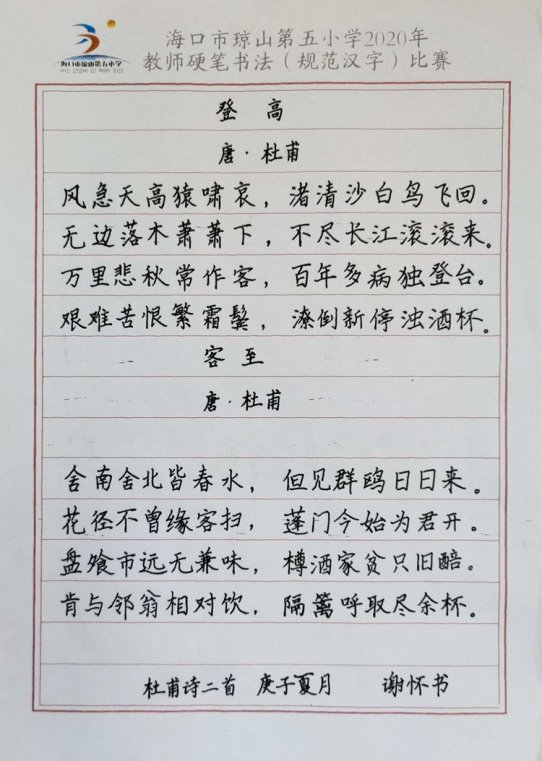 海口市琼山第五小学2020年
教师硬笔书法（规范汉字）比赛
海口市琼山第五小学
登 高
唐·杜甫
风急天高猿啸哀，渚清沙白鸟飞回。
无边落木萧萧下，不尽长江滚滚来。
万里悲秋常作客，百年多病独登台。
艰难苦恨繁霜鬓，潦倒新停浊酒杯。
客 至
唐·杜甫
舍南舍北皆春水，但见群鸥日日来。
花径不曾缘客扫，蓬门今始为君开。
盘飧市远无兼味，樽酒家贫只旧醅。
肯与邻翁相对饮，隔篱呼取尽余杯。
杜甫诗二首 庚子夏月 谢怀书